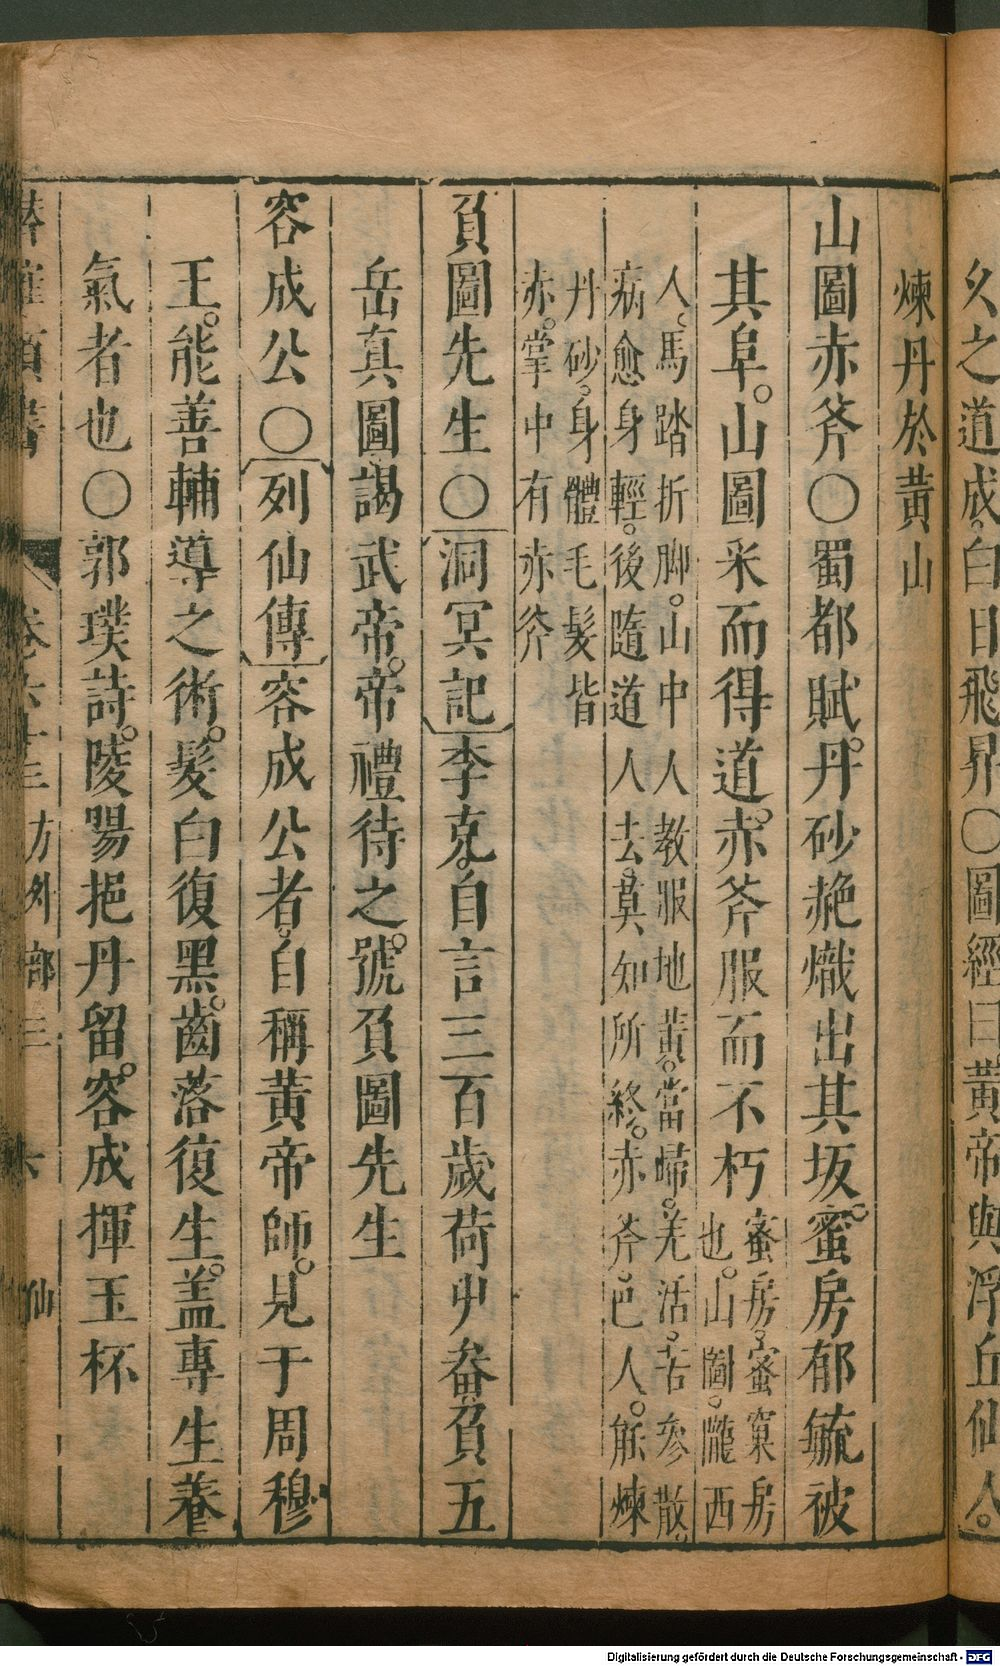 久之道成。白日飛昇〇圖經曰黃帝與浮丘仙人。
煉丹於黃山
山圖赤斧〇蜀都賦。丹砂赩熾出其坂。蜜房郁毓被
其阜。山圖采而得道。赤斧服而不朽
蜜房。蜜窠房
也。山圖。隴西
人。馬踏折脚。山中人教服地黃。當歸。羌活。苦參散。
病愈身輕。後隨道人去。莫知所終。赤斧。巴人。能煉
丹砂。身體毛髮皆
赤。掌中有赤斧
負圖先生〇洞冥記李克。自言三百歲荷艸畚負五
岳真圖謁武帝。帝禮待之。號負圖先生
容成公〇列仙傳容成公者。自稱黃帝師。見于周穆
王。能善輔導之術。髮白復黑。齒落復生。蓋專生養
氣者也〇郭璞詩。陵陽挹丹留。容成揮玉杯
卷六十三 方外部三 六 仙
Digitalisierung gefördert durch die Deutsche Forschungsgemeinschaft - DFG